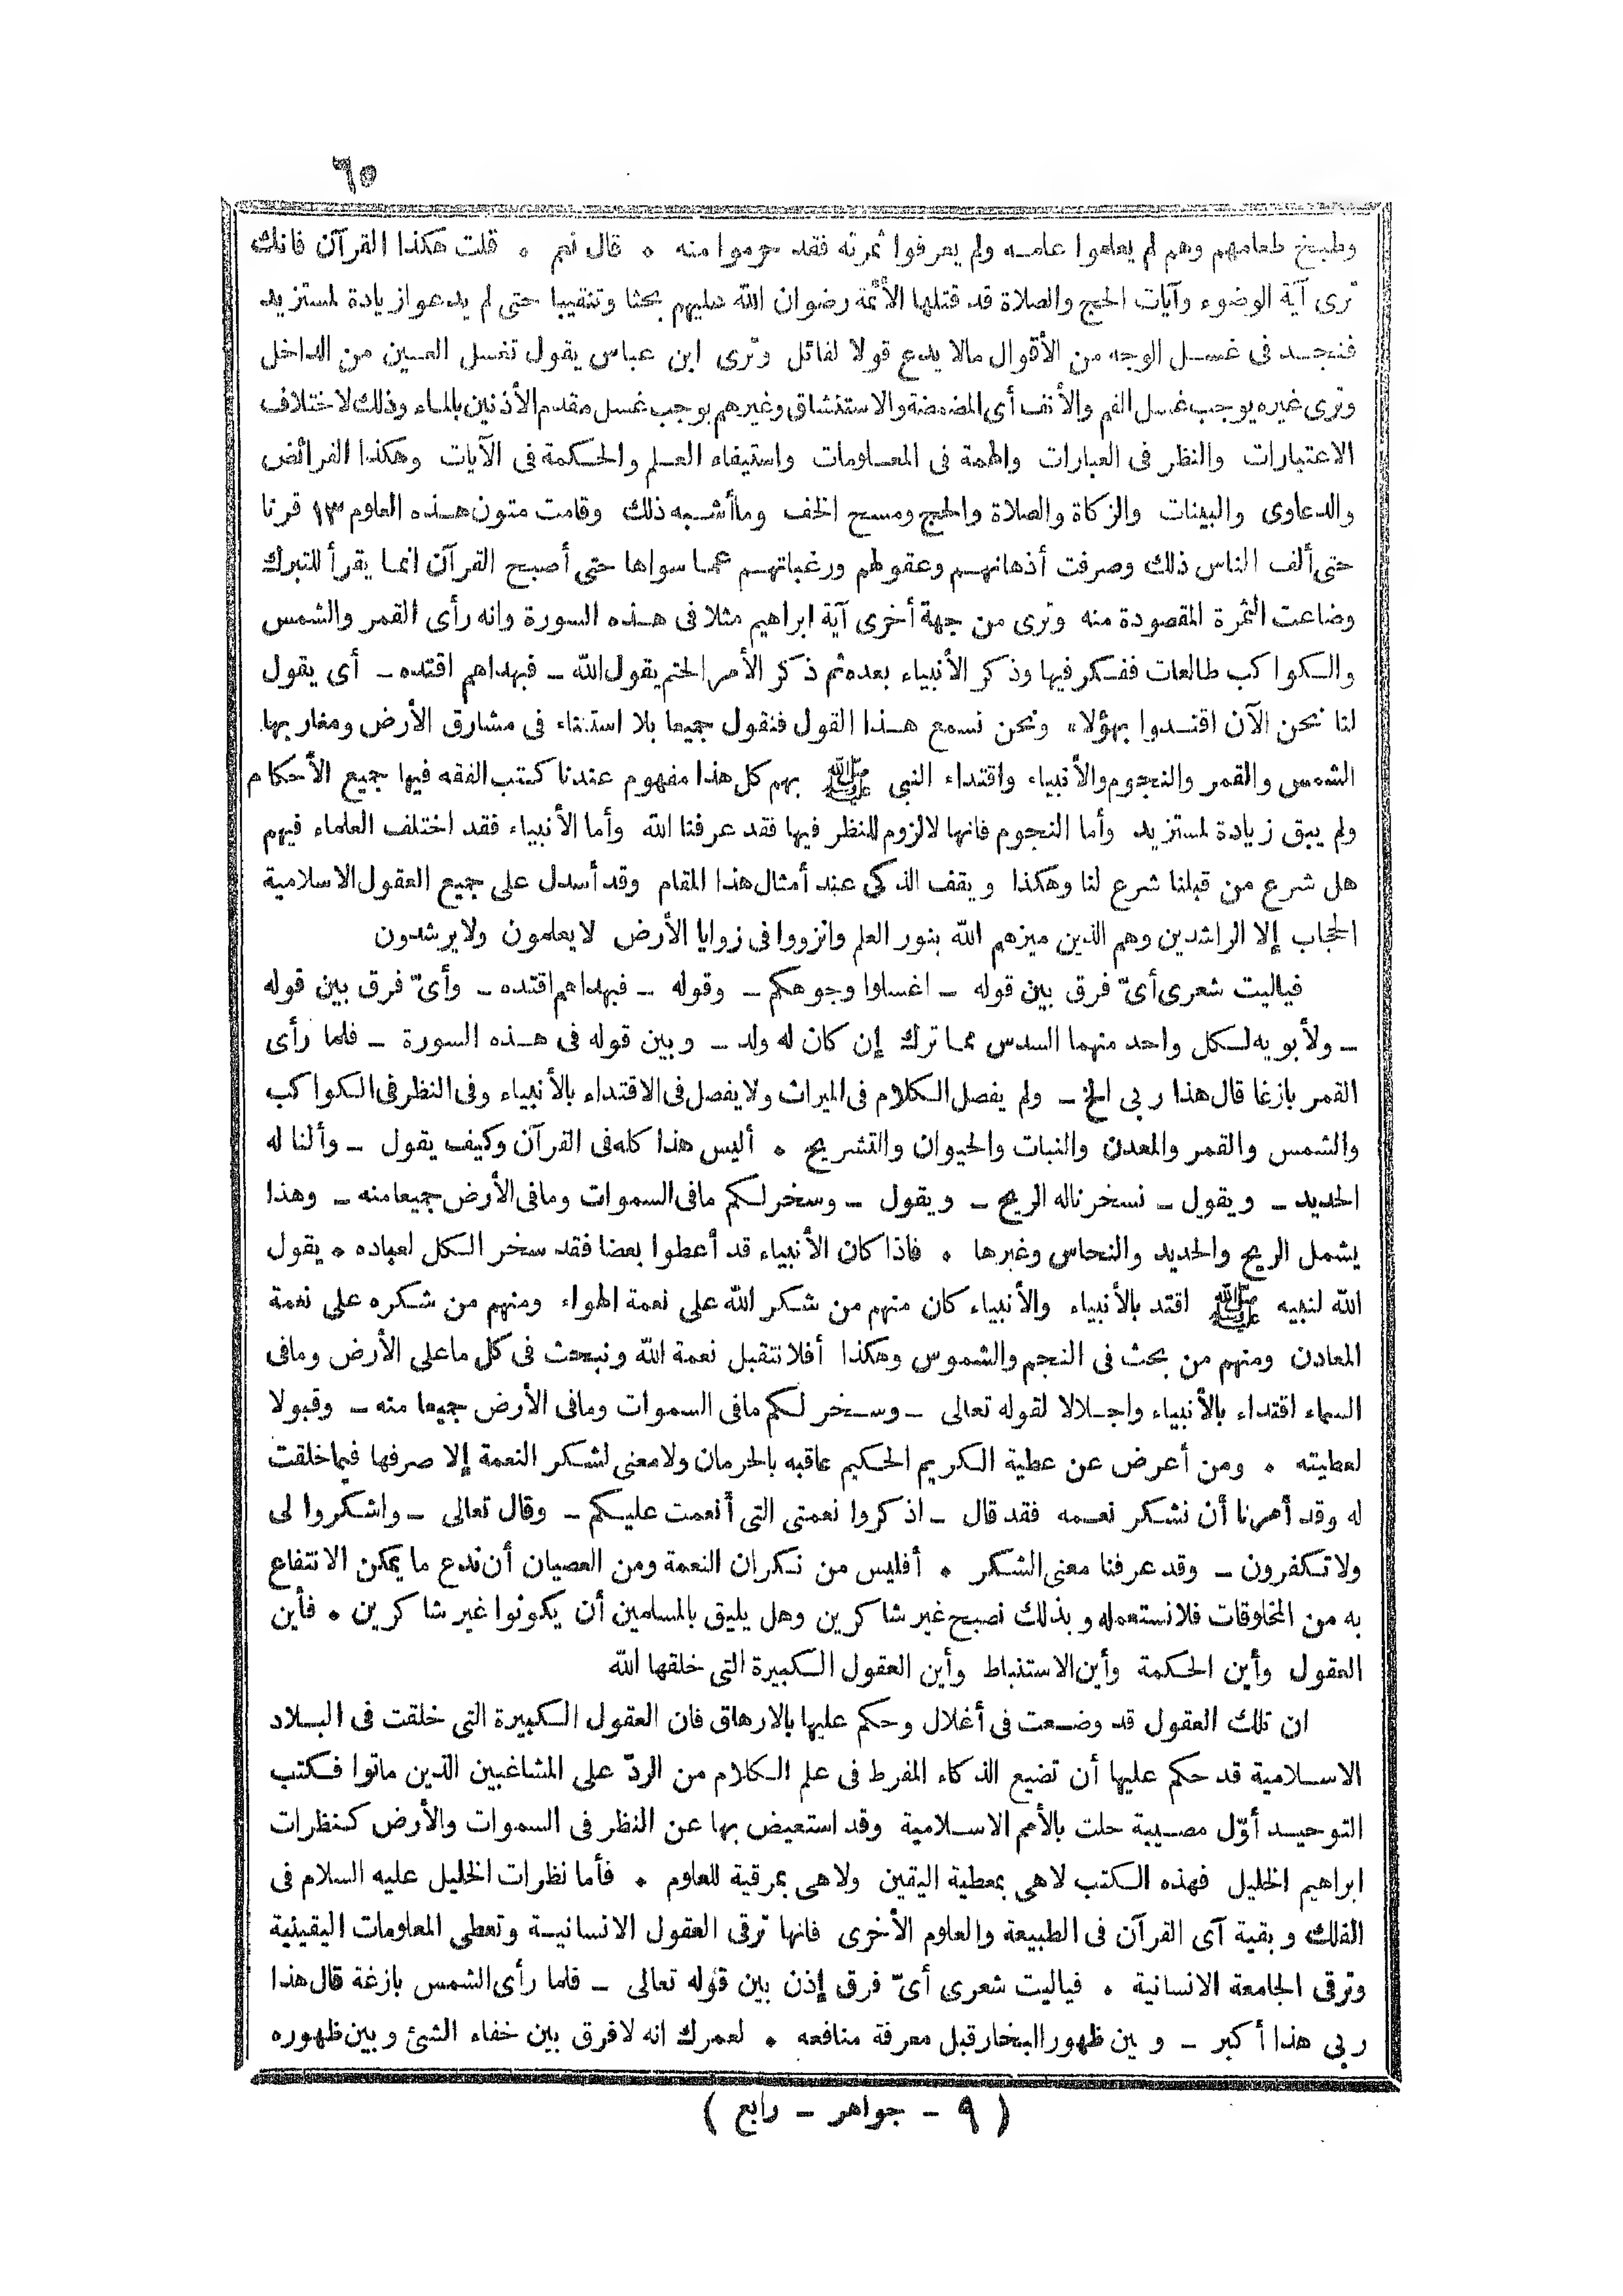 ٦٥
وطبخ طعامهم وهم لم يعلموا علمه ولم يعرفوا ثمرته فقد حرموا منه • قال نعم • قلت هكذا القرآن فانك
ترى آية الوضوء وآيات الحج والصلاة قد قتلها الأئمة رضوان الله عليهم بحثا وتنقيبا حتى لم يدعوا زيادة لمستزيد
فنجد فى غسل الوجه من الأقوال مالا يدع قولا لقائل وترى ابن عباس يقول تغسل العين من الداخل
وترى غيره يوجب غسل الفم والأنف أى المضمضة والاستنشاق وغيرهم يوجب غسل مقدم الأذنين بالماء وذلك لاختلاف
الاعتبارات والنظر فى العبارات والهمة فى المعلومات واستيفاء العلم والحكمة فى الآيات وهكذا الفرائض
والدعاوى والبينات والزكاة والصلاة والحج ومسح الخف وما أشبه ذلك وقامت متون هذه العلوم ١٣ قرنا
حتى ألف الناس ذلك وصرفت أذهانهم وعقولهم ورغباتهم عما سواها حتى أصبح القرآن انما يقرأ للتبرك
وضاعت الثمرة المقصودة منه وترى من جهة أخرى آية ابراهيم مثلا فى هذه السورة وانه رأى القمر والشمس
والكواكب طالعات ففكر فيها وذكر الأنبياء بعده ثم ذكر الأمر الحتم يقول الله ـ فبهداهم اقتده ـ أى يقول
لنا نحن الآن اقتدوا بهؤلاء ونحن نسمع هذا القول فنقول جميعا بلا استثناء فى مشارق الأرض ومغاربها
الشمس والقمر والنجوم والأنبياء واقتداء النبى ﷺ بهم كل هذا مفهوم عندنا كتب الفقه فيها جميع الأحكام
ولم يبق زيادة لمستزيد وأما النجوم فانها لالزوم للنظر فيها فقد عرفنا الله وأما الأنبياء فقد اختلف العلماء فيهم
هل شرع من قبلنا شرع لنا وهكذا ويقف الذكى عند أمثال هذا المقام وقد أسدل على جميع العقول الاسلامية
الحجاب إلا الراشدين وهم الذين ميزهم الله بنور العلم وانزووا فى زوايا الأرض لايعلمون ولايرشدون
فياليت شعرى أىّ فرق بين قوله ـ اغسلوا وجوهكم ـ وقوله ـ فبهداهم اقتده ـ وأىّ فرق بين قوله
ـ ولأبويه لكل واحد منهما السدس مما ترك إن كان له ولد ـ وبين قوله فى هذه السورة ـ فلما رأى
القمر بازغا قال هذا ربى الخ ـ ولم يفصل الكلام فى الميراث ولايفصل فى الاقتداء بالأنبياء وفى النظر فى الكواكب
والشمس والقمر والمعدن والنبات والحيوان والتشريح • أليس هذا كله فى القرآن وكيف يقول ـ وألنا له
الحديد ـ ويقول ـ فسخرناله الريح ـ ويقول ـ وسخر لكم مافى السموات ومافى الأرض جميعا منه ـ وهذا
يشمل الريح والحديد والنحاس وغيرها • فاذا كان الأنبياء قد أعطوا بعضا فقد سخر الكل لعباده • يقول
الله لنبيه ﷺ اقتد بالأنبياء والأنبياء كان منهم من شكر الله على نعمة الهواء ومنهم من شكره على نعمة
المعادن ومنهم من بحث فى النجم والشموس وهكذا أفلا نتقبل نعمة الله ونبحث فى كل ماعلى الأرض ومافى
السماء اقتداء بالأنبياء واجلالا لقوله تعالى ـ وسخر لكم مافى السموات ومافى الأرض جميعا منه ـ وقبولا
لعطيته • ومن أعرض عن عطية الكريم الحكيم عاقبه بالحرمان ولامعنى لشكر النعمة إلا صرفها فيما خلقت
له وقد أمرنا أن نشكر نعمه فقد قال ـ اذكروا نعمتى التى أنعمت عليكم ـ وقال تعالى ـ واشكروا لى
ولاتكفرون ـ وقد عرفنا معنى الشكر • أفليس من نكران النعمة ومن العصيان أن ندع مايمكن الانتفاع
به من المخلوقات فلانستعمله وبذلك نصبح غير شاكرين وهل يليق بالمسلمين أن يكونوا غير شاكرين • فأين
العقول وأين الحكمة وأين الاستنباط وأين العقول الكبيرة التى خلقها الله
ان تلك العقول قد وضعت فى أغلال وحكم عليها بالارهاق فان العقول الكبيرة التى خلقت فى البلاد
الاسلامية قد حكم عليها أن تضيع الذكاء المفرط فى علم الكلام من الردّ على المشاغبين الذين ماتوا فكتب
التوحيد أوّل مصيبة حلت بالأمم الاسلامية وقد استعيض بها عن النظر فى السموات والأرض كنظرات
ابراهيم الخليل فهذه الكتب لاهى بمعطية اليقين ولاهى بمرقية للعلوم • فأما نظرات الخليل عليه السلام فى
الفلك وبقية آى القرآن فى الطبيعة والعلوم الأخرى فانها ترقى العقول الانسانية وتعطى المعلومات اليقينية
وترقى الجامعة الانسانية • فياليت شعرى أىّ فرق إذن بين قوله تعالى ـ فلما رأى الشمس بازغة قال هذا
ربى هذا أكبر ـ وبين ظهور البخار قبل معرفة منافعه • لعمرك انه لافرق بين خفاء الشئ وبين ظهوره
( ٩ ـ جواهر ـ رابع )